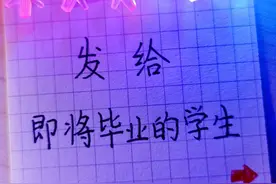 发给
即将毕业的学生